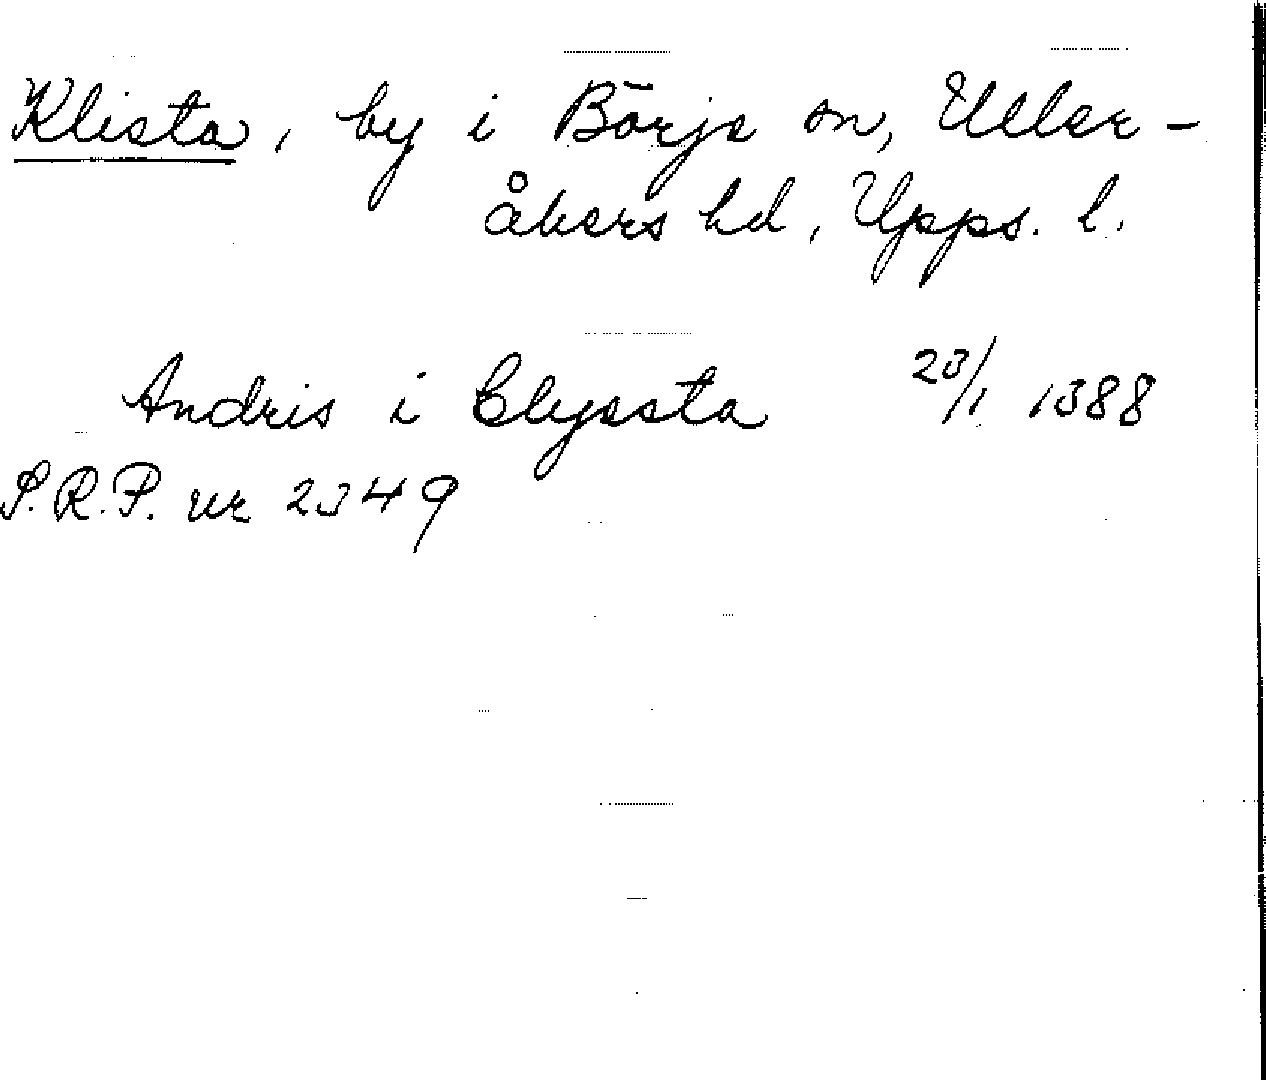 Klista, by i Börje sn, Uller-
åkers hd, Upps. l.
Andris i Clyssta 23/1 1388
S.R.P. nr 2349